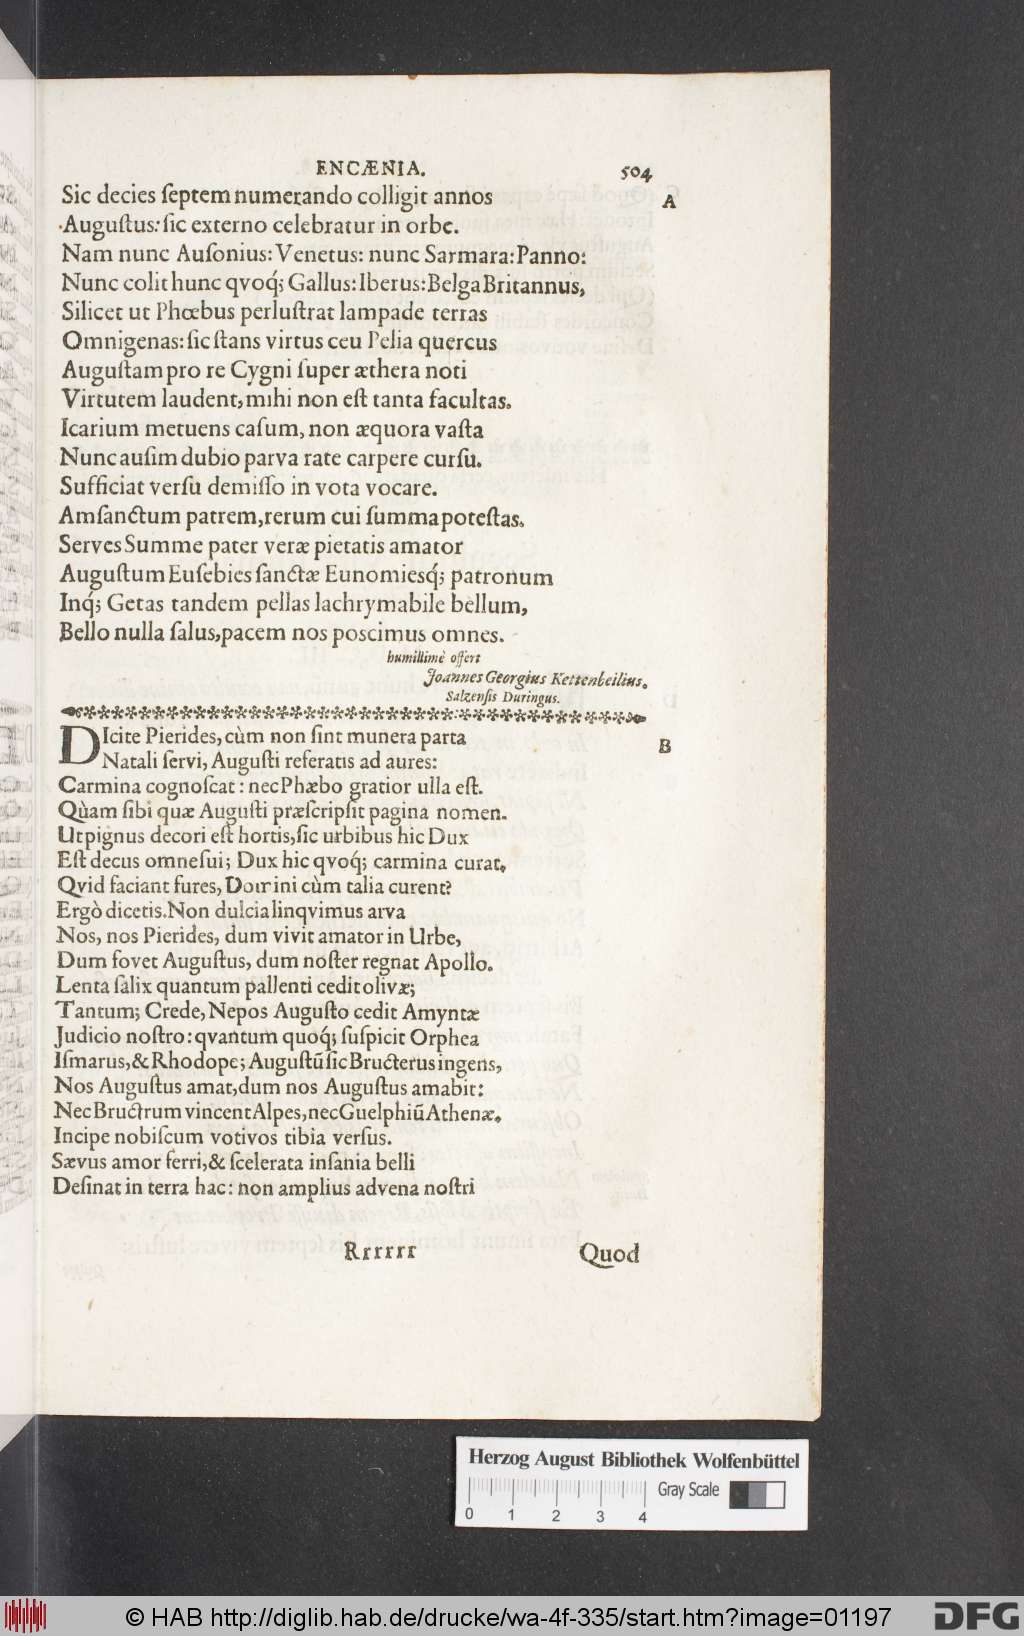 ENCÆNIA. 504
Sic decies ſeptem numerando colligit annos A
Auguſtus: ſic externo celebratur in orbe.
Nam nunc Auſonius: Venetus: nunc Sarmara: Panno:
Nunc colit hunc qvoq́; Gallus: Iberus: Belga Britannus,
Silicet ut Phœbus perluſtrat lampade terras
Omnigenas: ſic ſtans virtus ceu Pelia quercus
Auguſtam pro re Cygni ſuper æthera noti
Virtutem laudent, mihi non eſt tanta facultas.
Icarium metuens caſum, non æquora vaſta
Nunc auſim dubio parva rate carpere curſu.
Sufficiat verſu demiſſo in vota vocare.
Amſanctum patrem, rerum cui ſumma poteſtas.
Serves Summe pater veræ pietatis amator
Auguſtum Euſebies ſanctæ Eunomiesq́; patronum
Inq́; Getas tandem pellas lachrymabile bellum,
Bello nulla ſalus, pacem nos poscimus omnes.
humillimè offert
Joannes Georgius Kettenbeilius.
Salzenſis Duringus.
DIcite Pierides, cùm non ſint munera parta B
Natali ſervi, Auguſti referatis ad aures:
Carmina cognoſcat: nec Phæbo gratior ulla eſt.
Qùam ſibi quæ Auguſti præſcripſit pagina nomen.
Ut pignus decori eſt hortis, ſic urbibus hic Dux
Eſt decus omne ſui; Dux hic qvoq́; carmina curat,
Qvid faciant fures, Domini cùm talia curent?
Ergò dicetis. Non dulcia linqvimus arva
Nos, nos Pierides, dum vivit amator in Urbe,
Dum fovet Auguſtus, dum noſter regnat Apollo.
Lenta ſalix quantum pallenti cedit olivæ;
Tantum; Crede, Nepos Auguſto cedit Amyntæ
Judicio noſtro: qvantum quoq́; ſuſpicit Orphea
Iſmarus, & Rhodope; Auguſtũ ſic Bructerus ingens,
Nos Auguſtus amat, dum nos Auguſtus amabit:
Nec Bructrum vincent Alpes, nec Guelphiũ Athenæ,
Incipe nobiſcum votivos tibia verſus.
Sævus amor ferri, & ſcelerata inſania belli
Deſinat in terra hac: non amplius advena noſtri
Rrrrrr Quod
Herzog August Bibliothek Wolfenbüttel
Gray Scale
0 1 2 3 4
© HAB http://diglib.hab.de/drucke/wa-4f-335/start.htm?image=01197 DFG